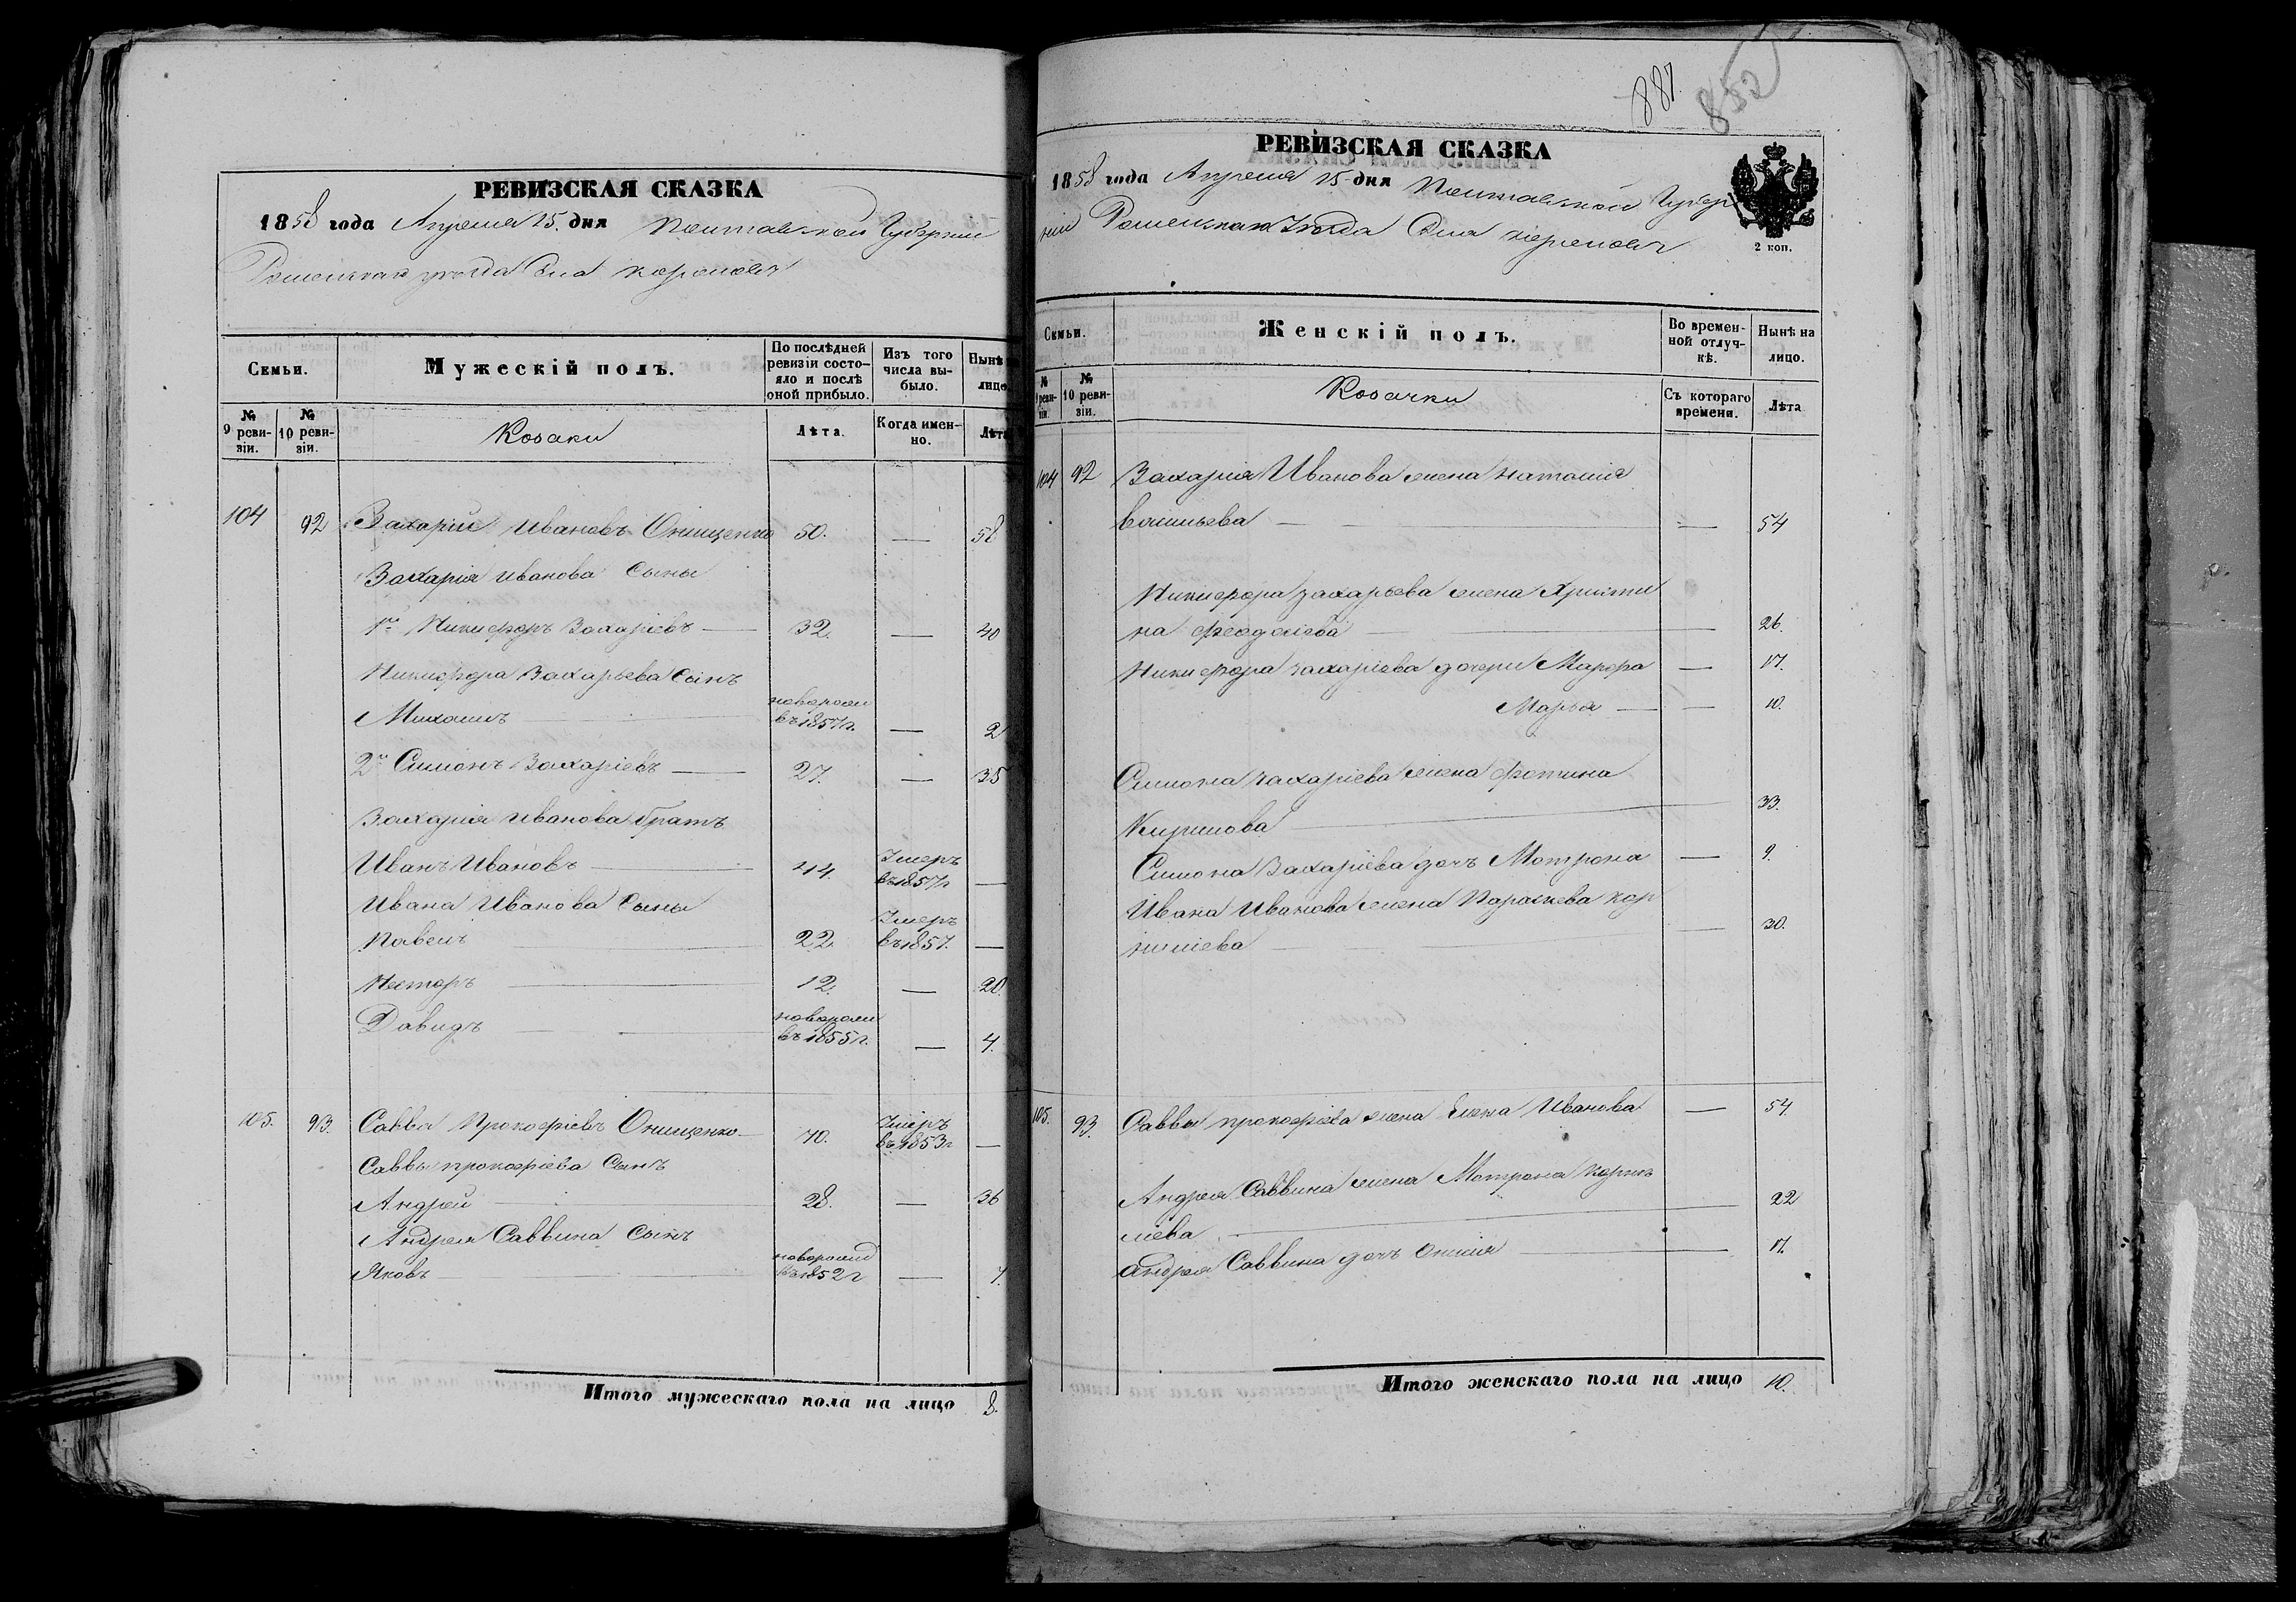 РЕВИЗСКАЯ СКАЗКА
1858 года Апреля 15. дня Полтавской Губерніи
Роменскаго уезда Села
Семьи.
Мужескій полъ.
По послѣдней ревизіи состояло и послѣ оной прибыло.
Изъ того числа выбыло.
Нынѣ лицо
№ 9 ревизіи.
№ 10 ревизіи.
Козаки
Лѣта.
Когда именно.
Лѣта
104 92 Захарій Ивановъ Онищенко 50. — 58
Захарія Иванова Сыны
1й Никифоръ Захаріевъ — 32. — 40
Никифора Захарьева Сынъ
Михаилъ новорож въ 1857г. — 2
2й Симонъ Захаріевъ — 27. — 35
Захарія Иванова братъ
Иванъ Ивановъ — 44. Умеръ въ 1857г —
Ивана Иванова Сыны
Павелъ 22. Умеръ въ 1857. —
Несторъ 12. — 20.
Давидъ новорож въ 1855г. — 4.
105. 93. Савва Прокофіевъ Онищенко — 70. Умеръ въ 1853г —
Саввы прокофіева Сынъ
Андрей 28. — 36
Андрея Саввина Сынъ
Яковъ новорожд въ 1852г — 7.
Итого мужескаго пола на лицо 8.
887.
852
РЕВИЗСКАЯ СКАЗКА
1858 года Апреля 15 дня Полтавской Губер
ніи Роменскаго Уезда Села
2 коп.
Семьи.
Женскій полъ.
Во временной отлучкѣ.
Нынѣ на лицо.
№ 9 ревизіи.
№ 10 ревизіи.
Козачки
Съ котораго времени.
Лѣта
104 92 Захарія Иванова жена Наталия
Васильева — — 54
Никифора Захарьева жена Христи
на — 26.
Никифора Захаріева дочери Марфа — 17.
Марья — — 10.
Симона Захаріева жена Фотина
Кирилова — 33.
Симона Захаріева дочь Мотрона — 9.
Ивана Иванова жена Параскева кор
ниліева — — 30.
105. 93. Саввы прокофіева жена Елена Иванова — 54.
Андрея Саввина жена Мотрона Корни
лиева — 22
Андрея Саввина дочь — 17.
Итого женскаго пола на лицо 10.